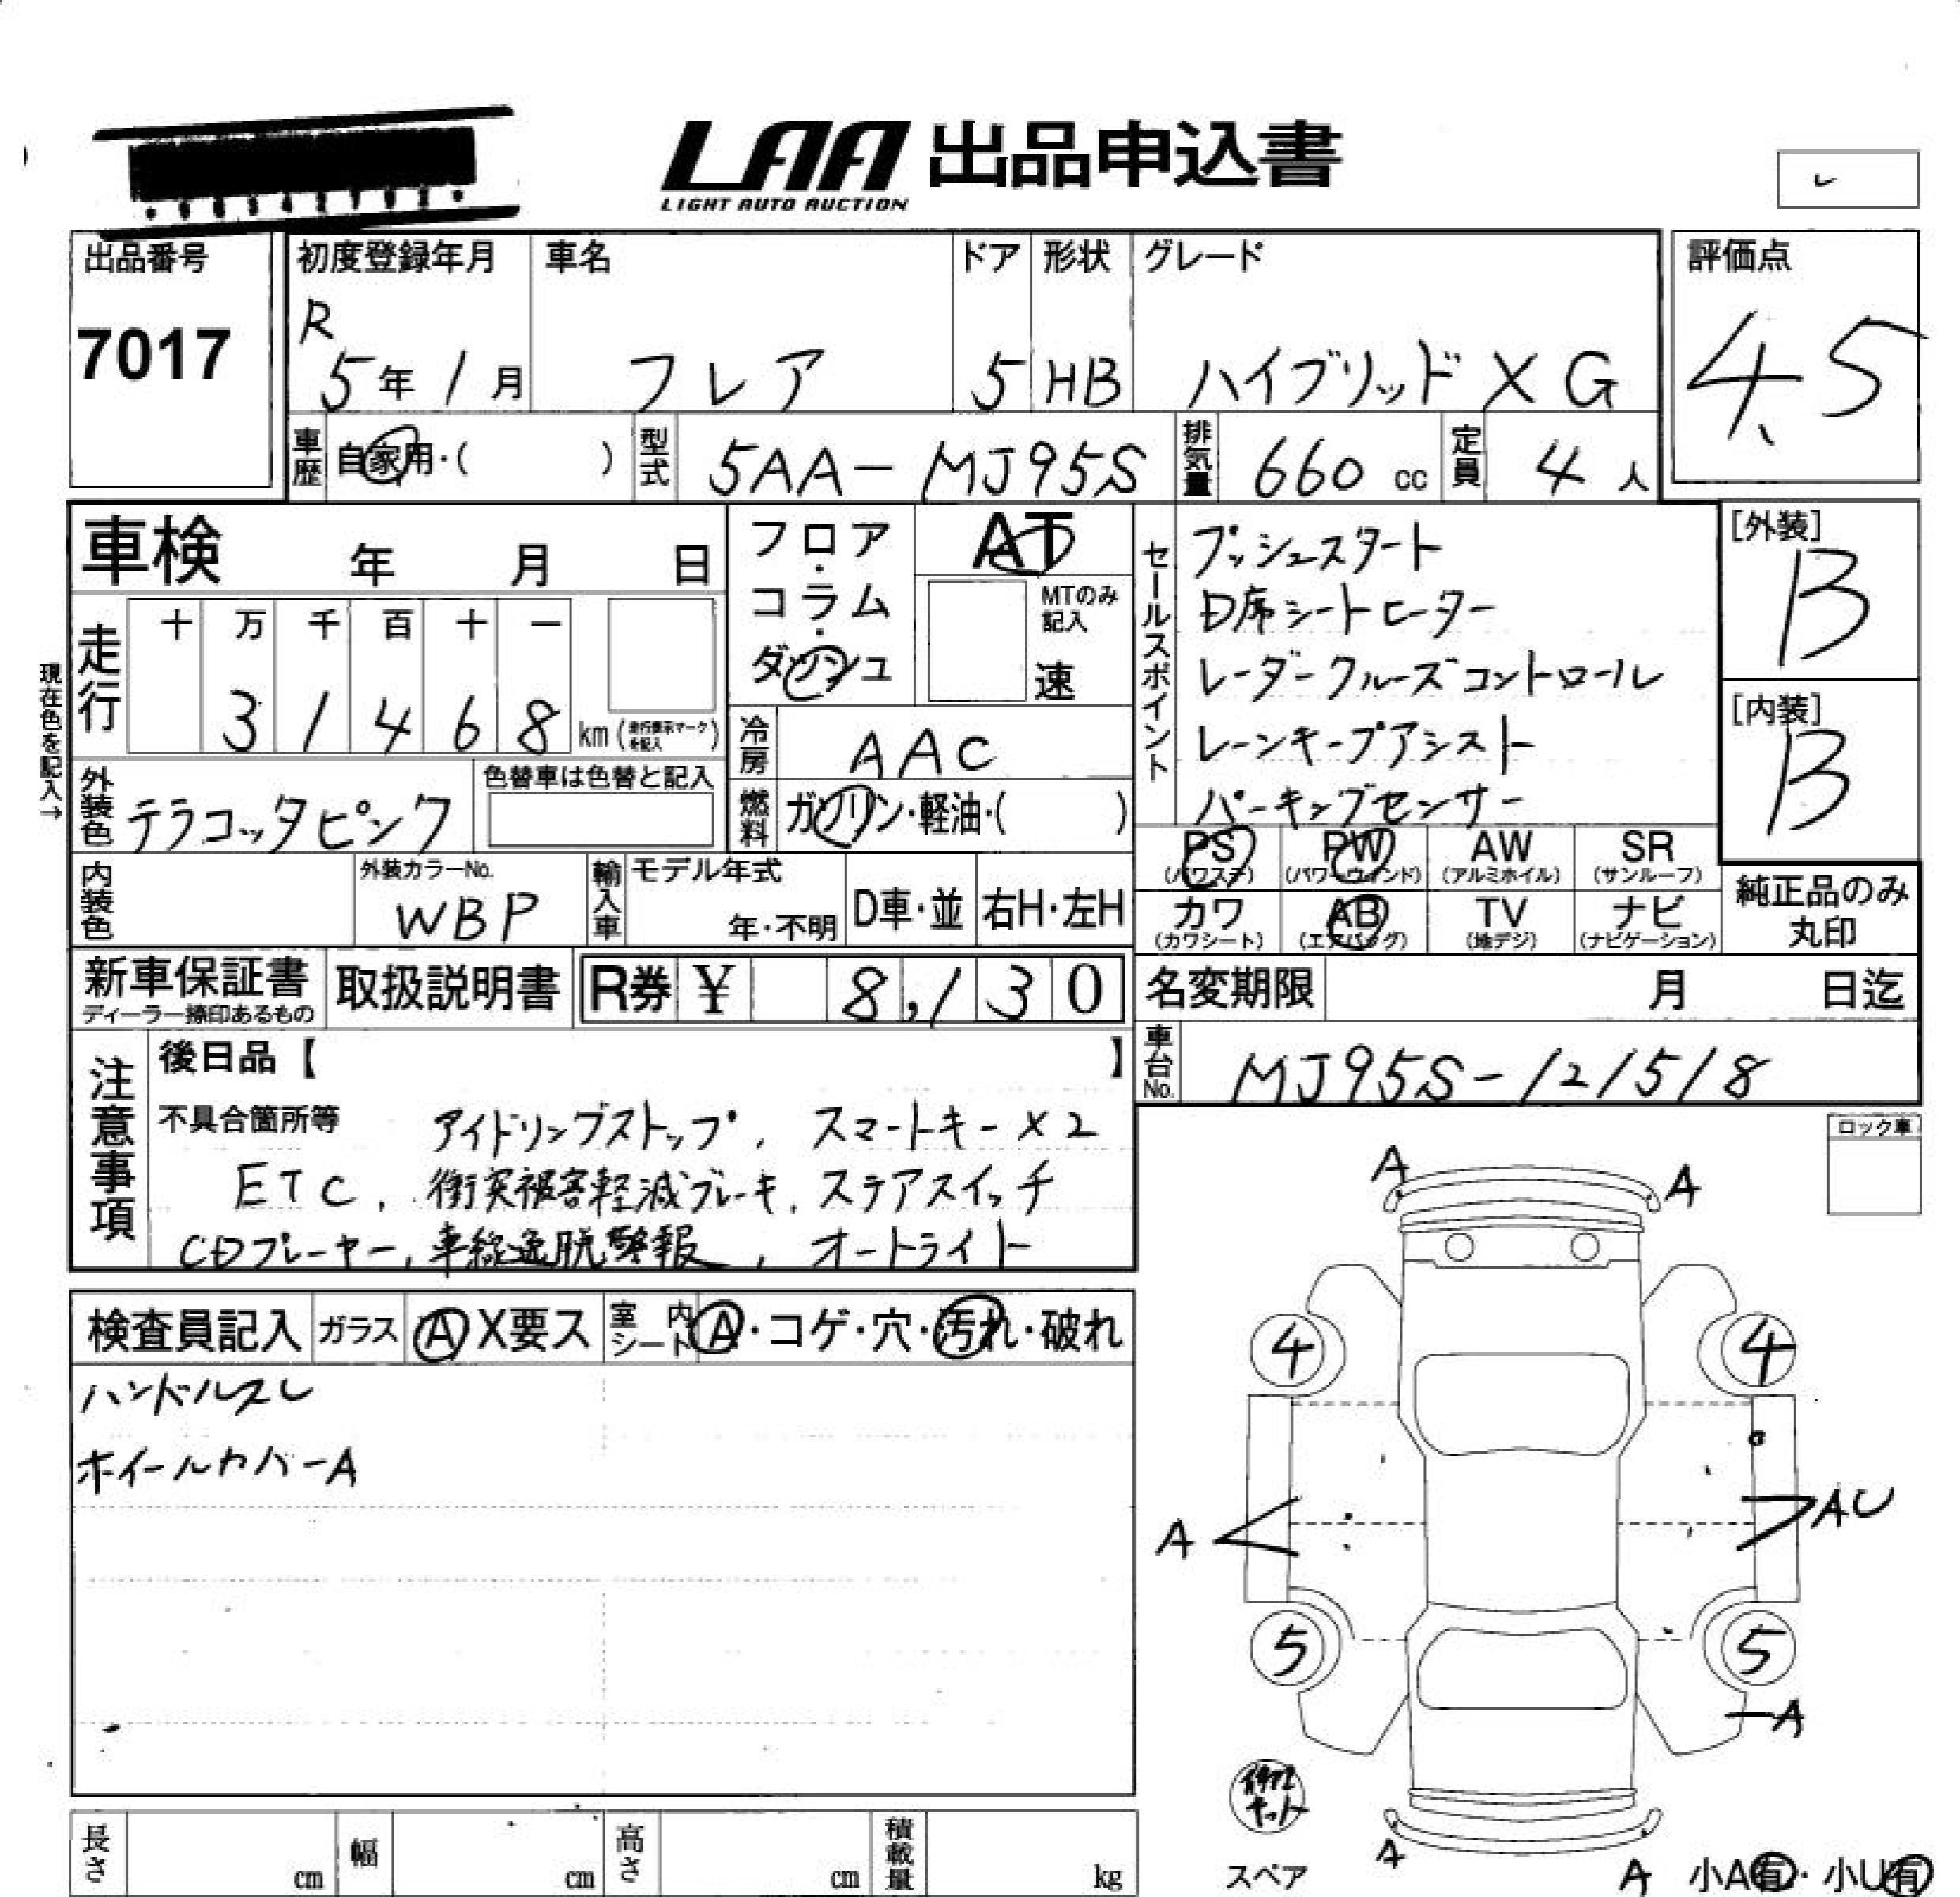 LAA 出品申込書
LIGHT AUTO AUCTION
出品番号 初度登録年月 車名 ドア 形状 グレード 評価点
7017 R 5年 1月 フレア 5 HB ハイブリッド X G 4.5
車歴 自家用・( ) 型式 5AA-MJ95S 排気量 660 cc 定員 4 人
車検 年 月 日
フロア・コラム・ダッシュ
AT
MTのみ記入
速
走行 十 万 千 百 十 一
3 1 4 6 8 km (走行表示マークを記入)
現在色を記入→
外装色 テラコッタピンク
色替車は色替と記入
冷房 AAC
燃料 ガソリン・軽油・( )
内装色
外装カラーNo.
WBP
輸入車 モデル年式 年・不明 D車・並 右H・左H
セールスポイント
プッシュスタート
D席シートヒーター
レーダークルーズコントロール
レーンキープアシスト
パーキングセンサー
[外装]
B
[内装]
B
PS PW AW SR
(パワステ) (パワーウィンド) (アルミホイル) (サンルーフ)
カワ AB TV ナビ
(カワシート) (エアバッグ) (地デジ) (ナビゲーション)
純正品のみ
丸印
新車保証書
ディーラー捺印あるもの
取扱説明書
R券 ¥ 8,130
名変期限 月 日迄
車台No. MJ95S-121518
注意事項
後日品【 】
不具合箇所等 アイドリングストップ, スマートキー×2
ETC, 衝突被害軽減ブレーキ, ステアスイッチ
CDプレーヤー, 車線逸脱警報, オートライト
ロック車
検査員記入 ガラス A X要ス 室内シート A・コゲ・穴・汚れ・破れ
ハンドルスレ
ホイールカバーA
A A
4 4
A AU
5 5
A
キット
スペア
A A
小A有・小U有
長さ cm 幅 cm 高さ cm 積載量 kg